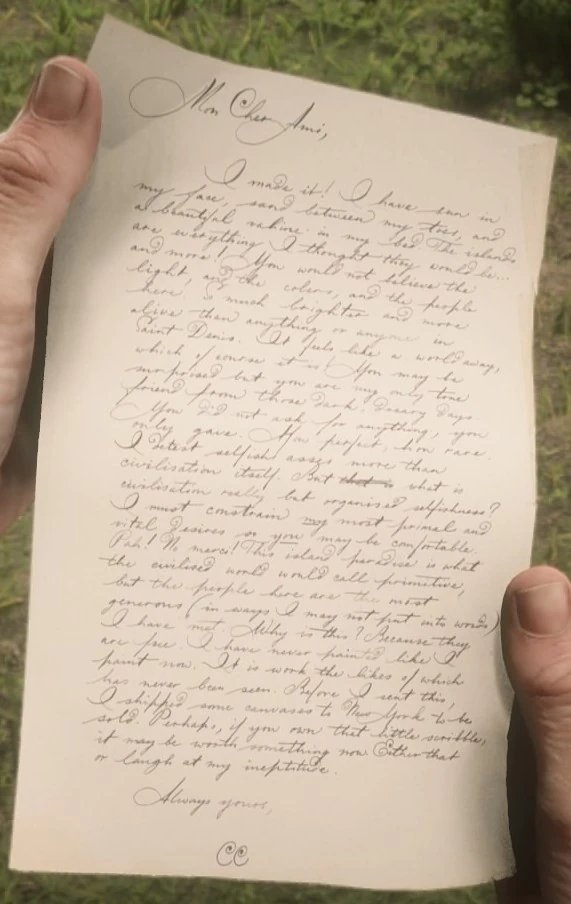 Mon Cher Ami,
I made it! I have sun in
my face, sand between my toes, and
a beautiful vahine in my bed. The islands
are everything I thought they would be...
and more! You would not believe the
light, and the colors, and the people
here, is much brighter and more
alive than anything or anyone in
Saint Denis. It feels like a world away,
which of course it is! You may be
surprised but you are my only true
friend from those dark, dreary days
You did not ask for anything, you
only gave. How perfect, how rare.
I detest selfish asses more than
civilisation itself. But that is what is
civilisation really but organised selfishness?
I must constrain my most primal and
vital desires so you may be comfortable.
Pah! No merci! This island paradise is what
the civilised world would call primitive,
but the people here are the most
generous (in ways I may not put into words)
I have met. Why is this? Because they
are free. I have never painted like I
paint now. It is work the likes of which
has never been seen. Before I sent this,
I shipped some canvases to New York to be
sold. Perhaps, if you own that little scribble,
it may be worth something now. Either that
or laugh at my ineptitude.
Always yours,
CC